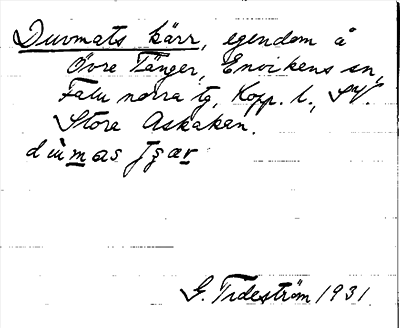 Duvmats kärr, egendom å
Övre Tänger, Envikens sn,
Falu norra tg, Kopp. l., SV.
Store Askaken.
G. Tideström 1931